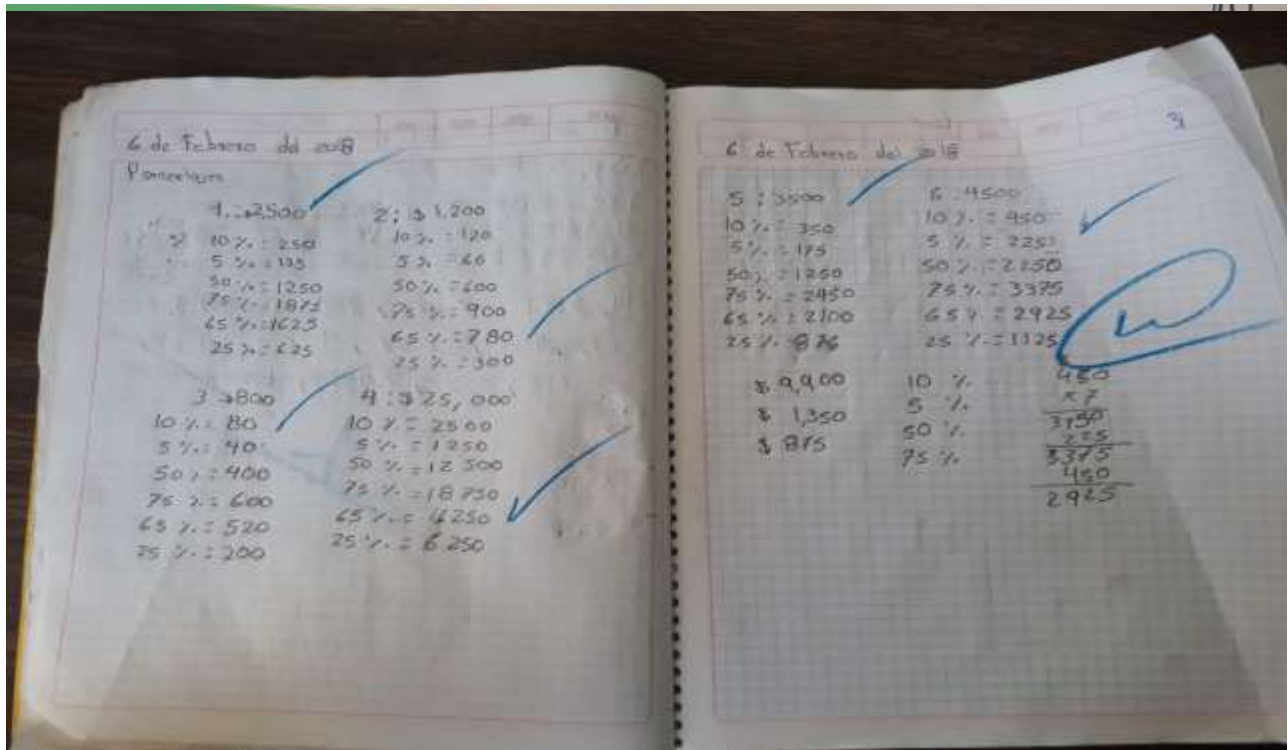 6 de Febrero del 2018
1: $2500
10 %. = 250
5 %. = 125
50 %. = 1250
75 %. = 1875
65 %. = 1625
25 %. = 625
2: $ 1,200
10 %. = 120
5 %. = 60
50 %. = 600
75 %. = 900
65 %. = 780
25 %. = 300
3 $800
10 %. = 80
5 %. = 40
50 %. = 400
75 %. = 600
65 %. = 520
25 %. = 200
4: $25,000
10 %. = 2500
5 %. = 1250
50 %. = 12 500
75 %. = 18 750
65 %. = 16250
25 %. = 6 250
6 de Febrero del 2018
5: 3500
10 %. = 350
5 %. = 175
50 %. = 1250
75 %. = 2450
65 %. = 2100
25 %.
6: 4500
10 %. = 450
5 %. = 225
50 %. = 2250
75 %. = 3375
65 %. = 2925
25 %. = 1125
$ 9,900
$ 1,350
$ 875
10 %.
5 %.
50 %.
75 %.
450
x 7
3150
225
3375
450
2925